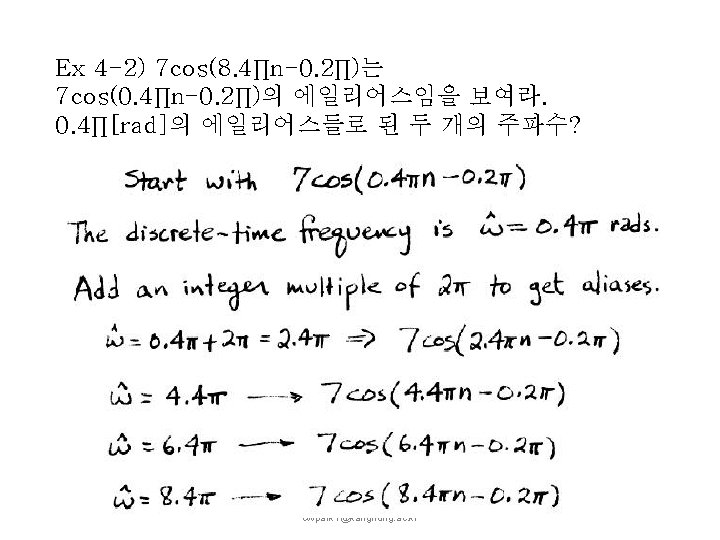 Ex 4-2) 7cos(8.4∏n-0.2∏)는
7cos(0.4∏n-0.2∏)의 에일리어스임을 보여라.
0.4∏[rad]의 에일리어스들로 된 두 개의 주파수?
Start with 7cos(0.4πn-0.2π)
The discrete-time frequency is ω̂ = 0.4π rads.
Add an integer multiple of 2π to get aliases.
ω̂ = 0.4π + 2π = 2.4π ⇒ 7cos(2.4πn-0.2π)
ω̂ = 4.4π → 7cos(4.4πn-0.2π)
ω̂ = 6.4π → 7cos(6.4πn-0.2π)
ω̂ = 8.4π → 7cos(8.4πn-0.2π)